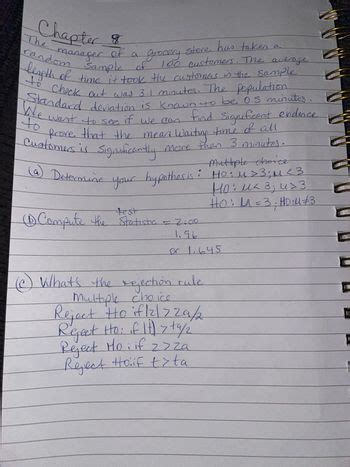 Chapter 8
The manager of a grocery store has taken a
random sample of 100 customers. The average
length of time it took the customers in the sample
to check out was 3.1 minutes. The population
Standard deviation is known to be 0.5 minutes.
We want to see if we can find Significent evidence
to prove that the mean waiting time of all
Customers is Significantly more than 3 minutes.
Multiple choice
(a) Determine your hypothesis: HO: μ>3; μ<3
HO: μ<3; μ>3
HO: μ=3; HO: μ≠3
test
(b) Compute the Statistic = 2.00
1.96
or 1.645
(c) Whats the rejection rule
Multiple choice
Reject Ho if |z| > Za/2
Reject Ho: if |t| > ta/2
Reject Ho: if z > Za
Reject Ho: if t > ta